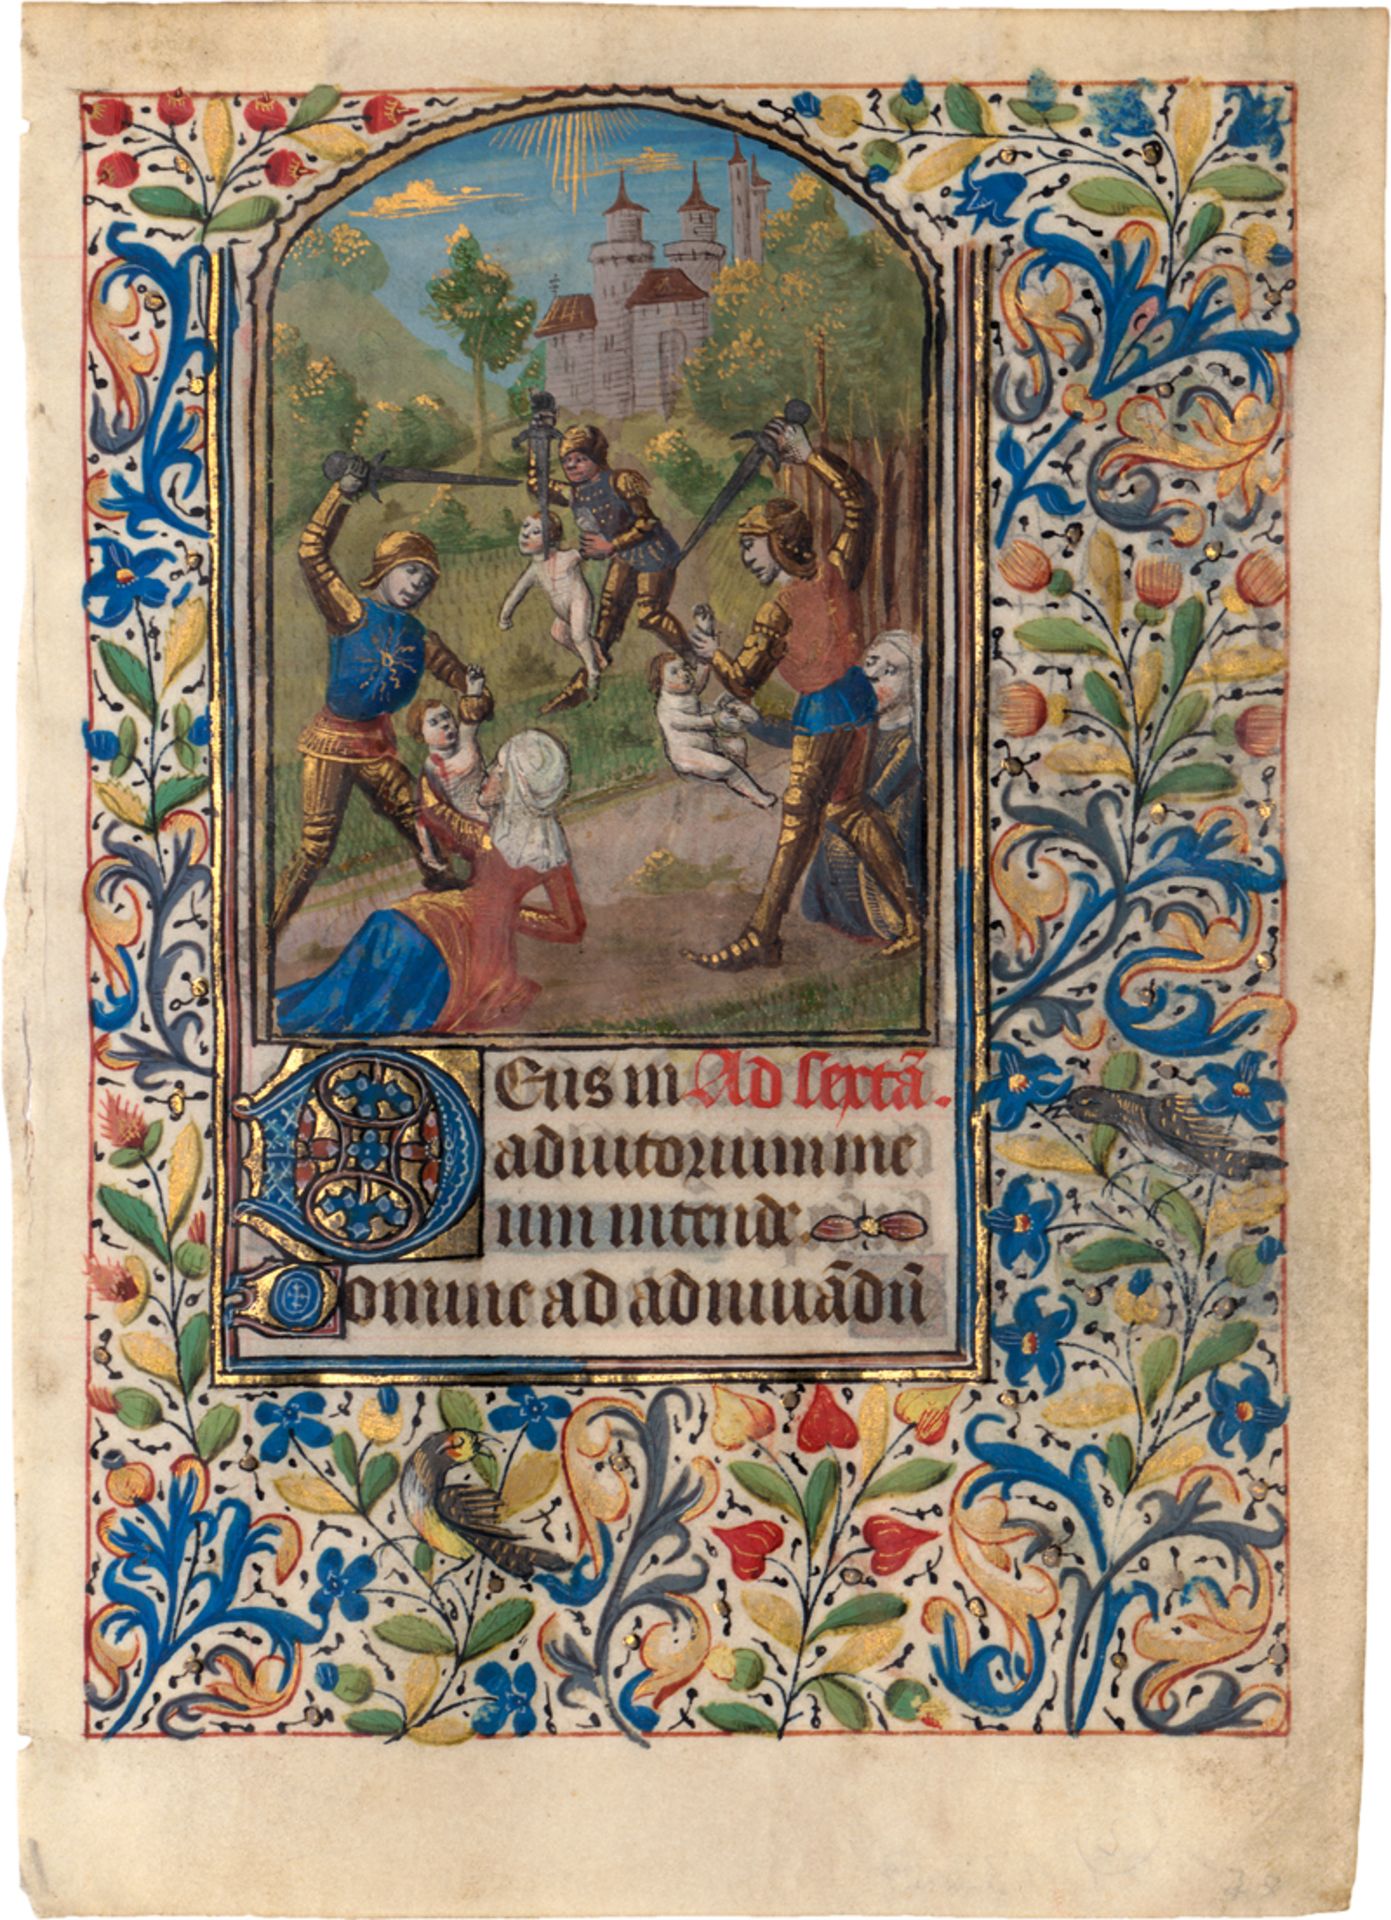 Deus in Ad sextã.
adiutorium me
um intende.
Domine ad adiuuãdũ